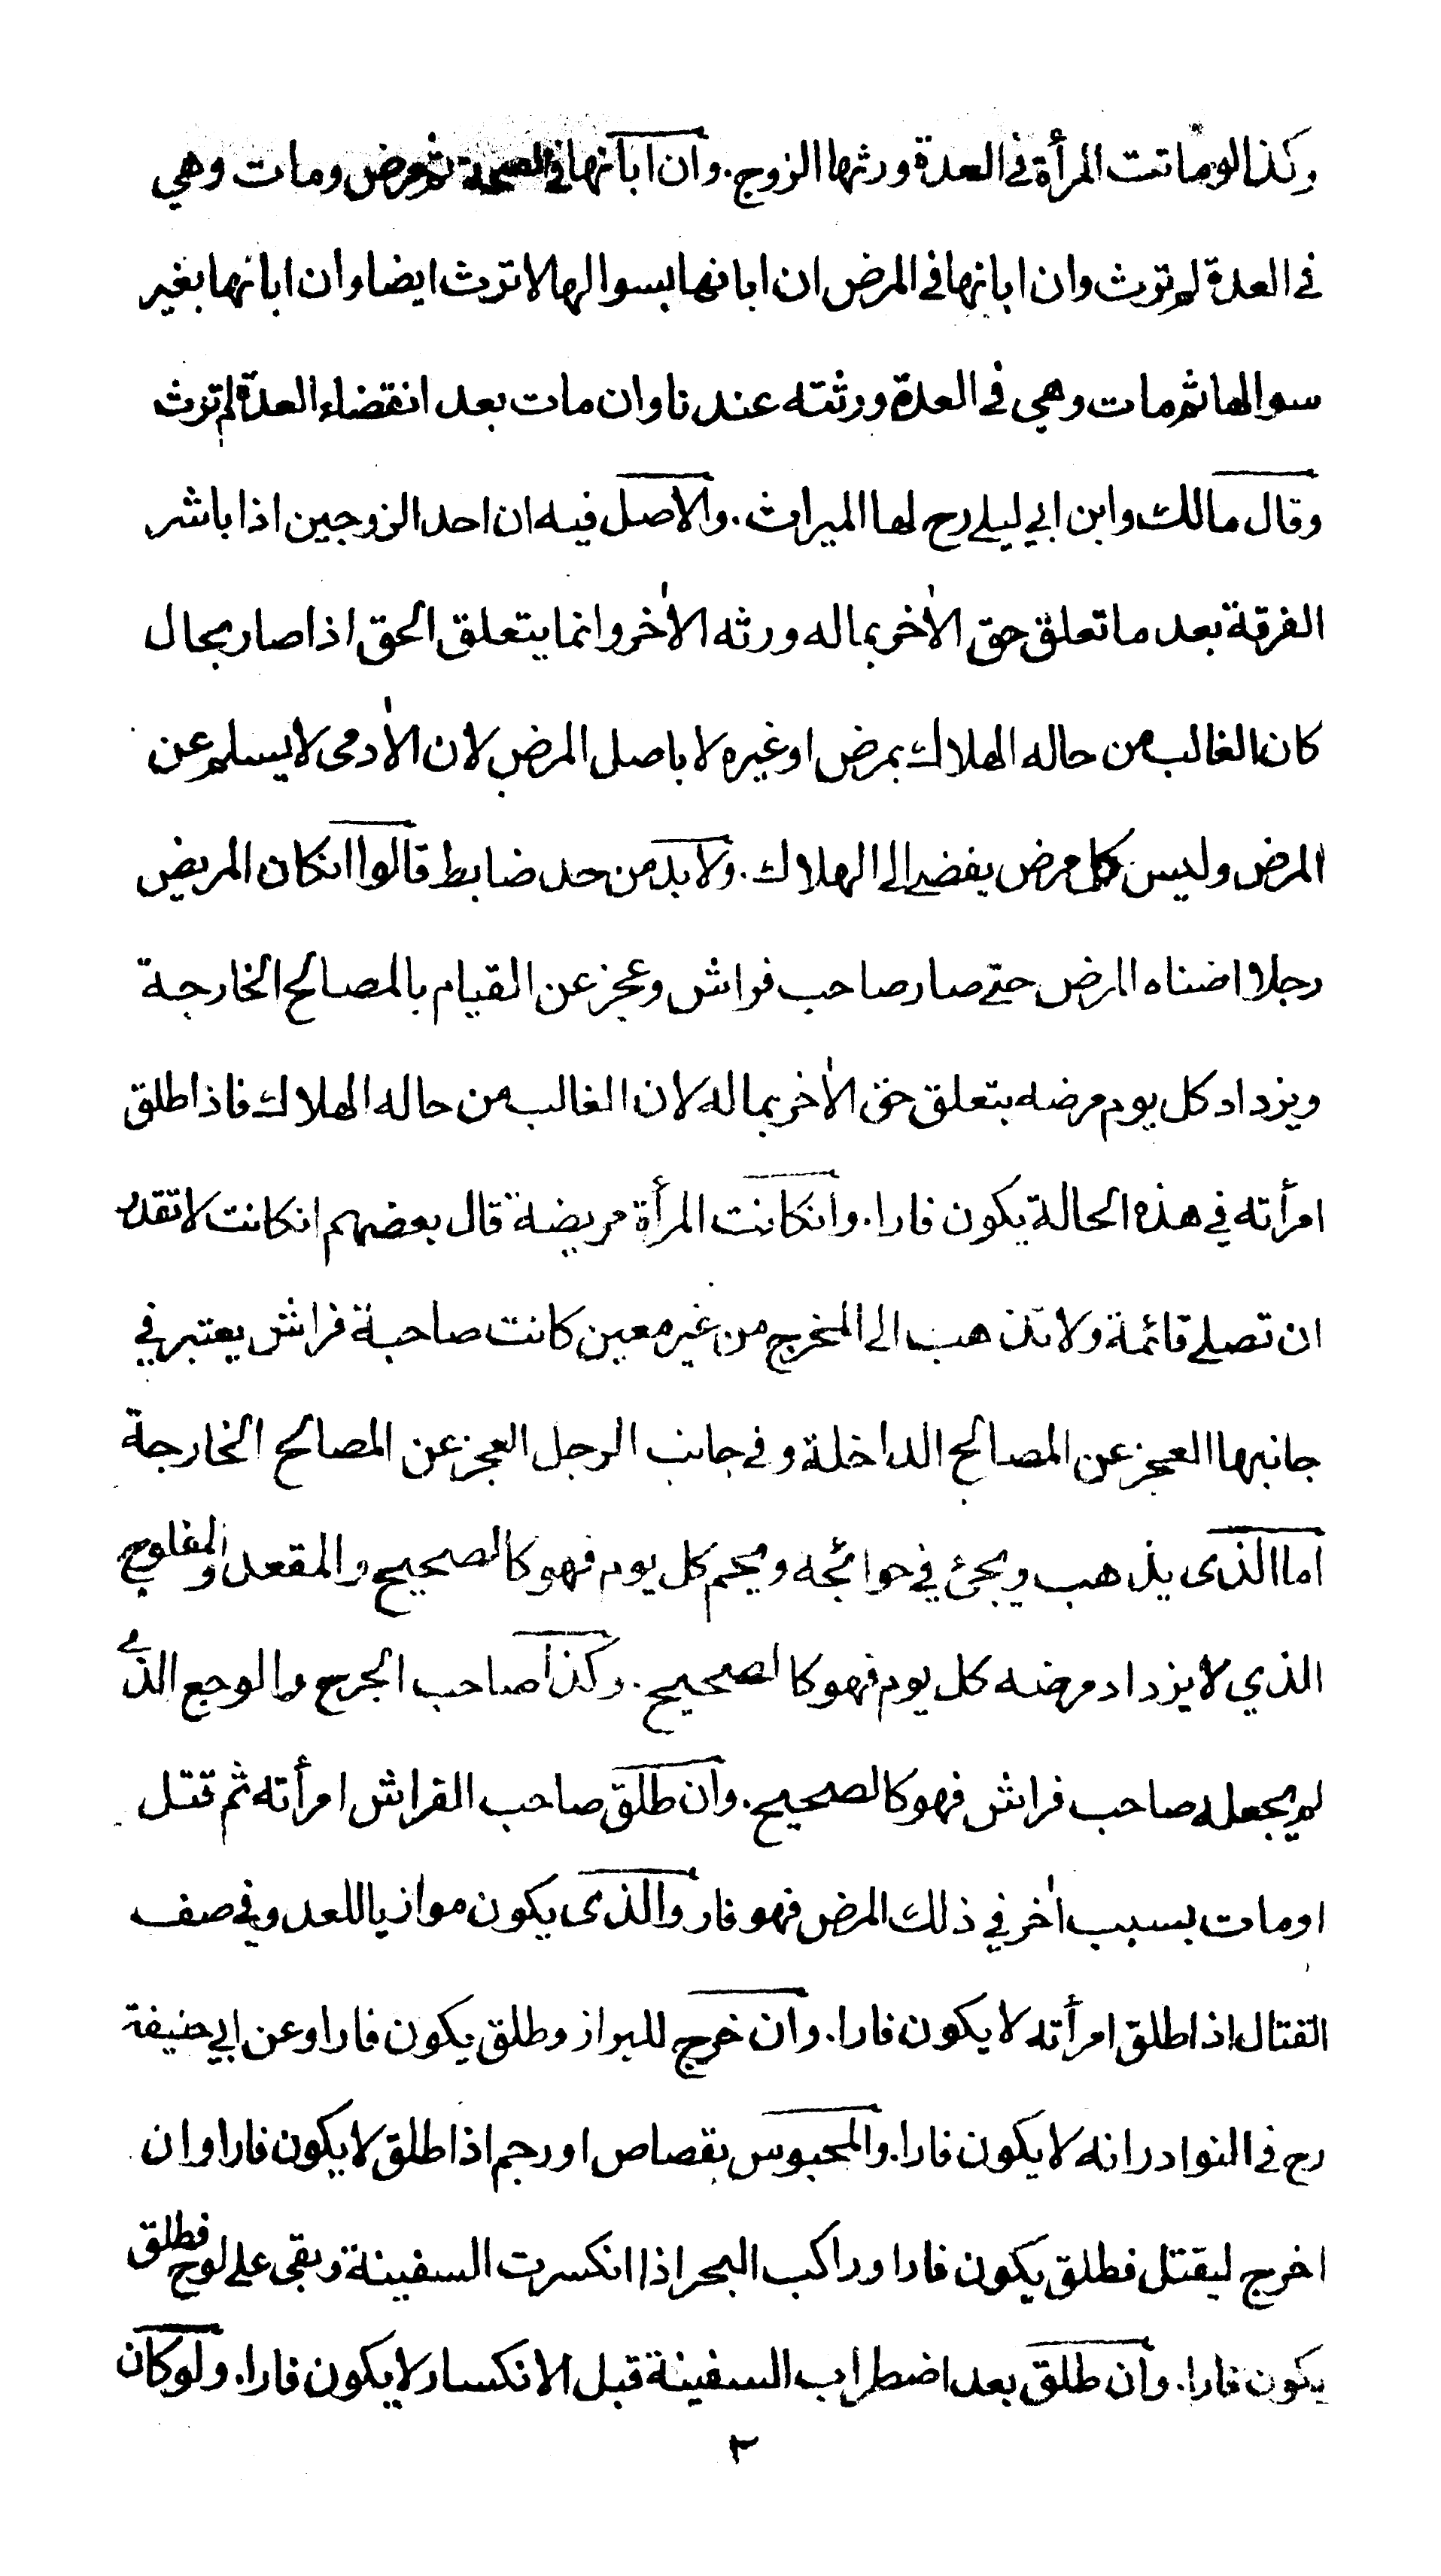 وكذا لو ماتت المرأة في العدة ورثها الزوج. وان ابانها في الصحة ثم مرض ومات وهي
في العدة لم ترث وان ابانها في المرض ان ابانها بسوالها لا ترث ايضا وان ابانها بغير
سوالها ثم مات وهي في العدة ورثته عندنا وان مات بعد انقضاء العدة لم ترث
وقال مالك وابن ابي ليلے رح لها الميراث. والاصل فيه ان احد الزوجين اذا باشر
الفرقة بعد ما تعلق حق الأخر بماله ورثه الأخر وانما يتعلق الحق اذا صار بحال
كان الغالب من حاله الهلاك بمرض او غيره لا باصل المرض لان الأدمى لا يسلم عن
المرض وليس كل مرض يفضے الى الهلاك. ولا بد من حد ضابط قالوا انكان المريض
رجلا اضناه المرض حتے صار صاحب فراش وعجز عن القيام بالمصالح الخارجة
ويزداد كل يوم مرضه يتعلق حق الأخر بماله لان الغالب من حاله الهلاك فاذا طلق
امرأته في هذه الحالة يكون فارا. وانكانت المرأة مريضة قال بعضهم انكانت لا تقدر
ان تصلے قائمة ولا تذهب الى المخرج من غير معين كانت صاحبة فراش يعتبر في
جانبها العجز عن المصالح الداخلة وفي جانب الرجل العجز عن المصالح الخارجة
اما الذى يذهب ويجئ في حوائجه ويحم كل يوم فهو كالصحيح والمقعد والمفلوج
الذي لا يزداد مرضه كل يوم فهو كالصحيح. وكذا صاحب الجرح والوجع الذے
لم يجعله صاحب فراش فهو كالصحيح. وان طلق صاحب الفراش امرأته ثم قتل
او مات بسبب أخر في ذلك المرض فهو فار والذى يكون موازيا للعدو في صف
القتال اذا طلق امرأته لا يكون فارا. وان خرج للبراز وطلق يكون فارا وعن ابي حنيفة
رح في النوادر انه لا يكون فارا. والمحبوس بقصاص او رجم اذا طلق لا يكون فارا وان
اخرج ليقتل فطلق يكون فارا وراكب البحر اذا انكسرت السفينة وبقى على لوح فطلق
يكون فارا. وان طلق بعد اضطراب السفينة قبل الانكسار لا يكون فارا. ولو كان
٣